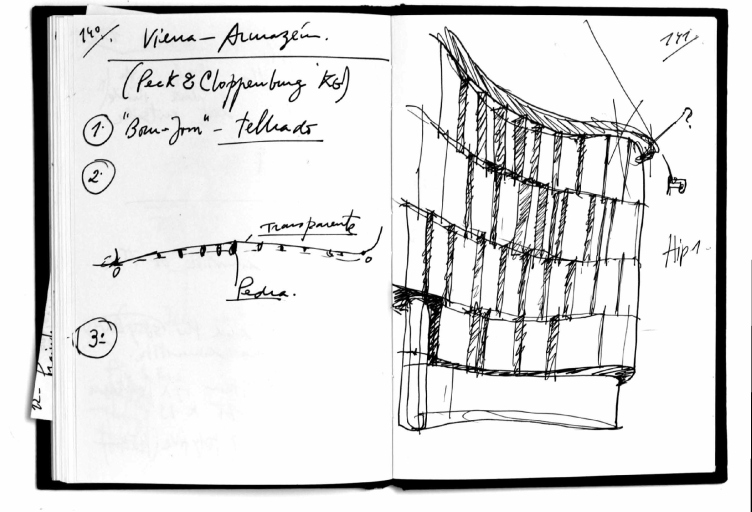 140/.
Viena – Armazém.
(Peek & Cloppenburg KG)
1. "Bom-Jom" – telhado
2.
Transparente
Pedra.
3º
141
?
Hip 1.